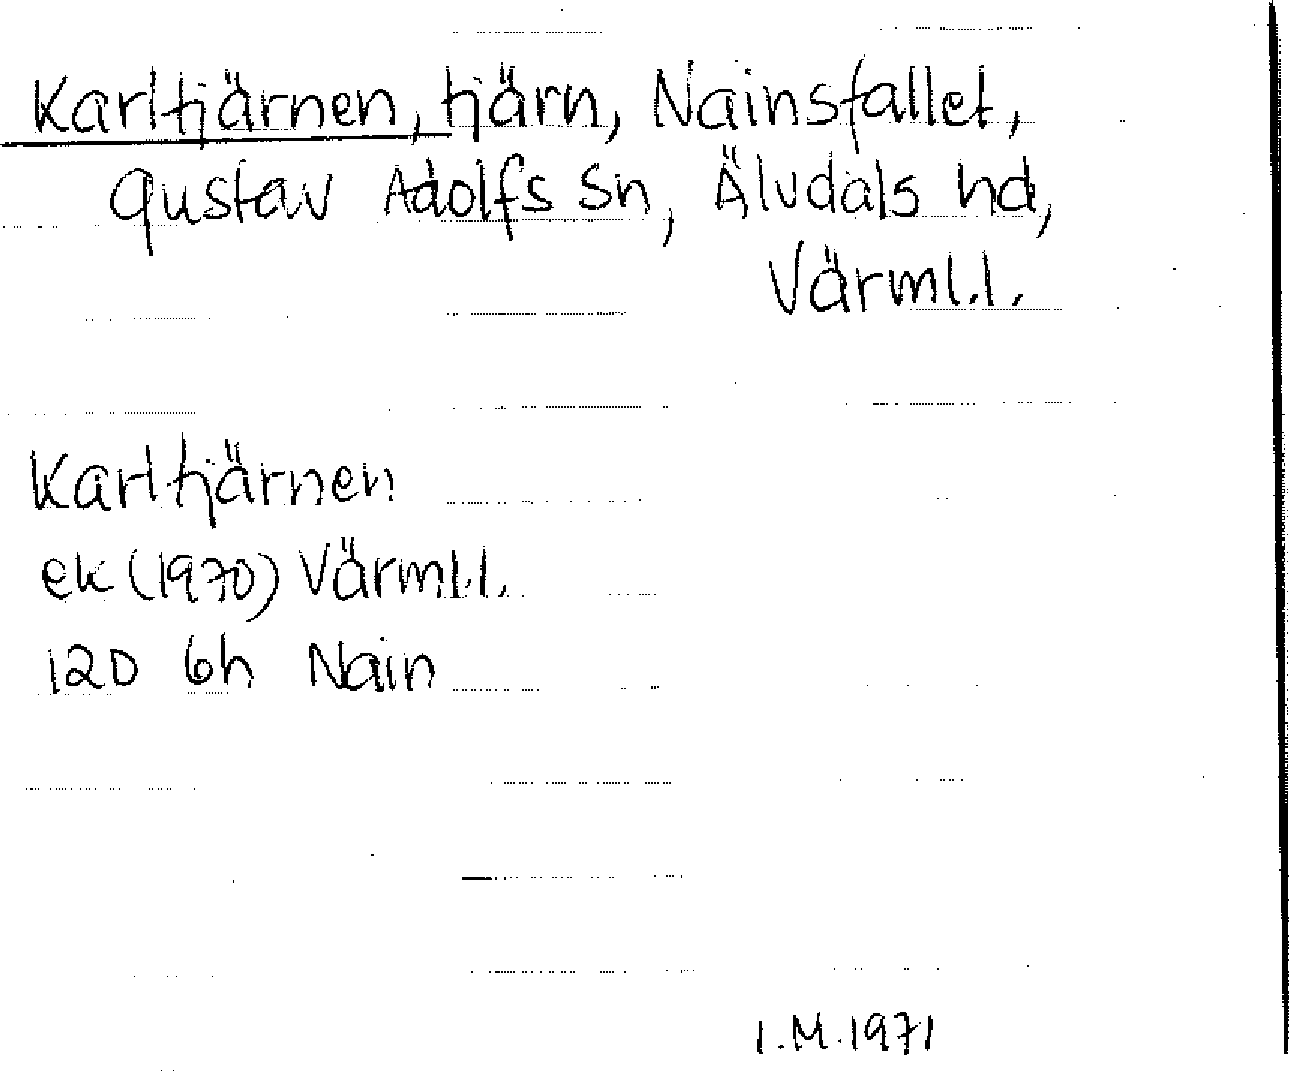 Karltjärnen, tjärn, Nainsfallet,
Gustav Adolfs Sn, Älvdals hd,
Värml.l.
Karltjärnen
ek (1970) Värml.l.
12D 6h Nain
I.M.1971